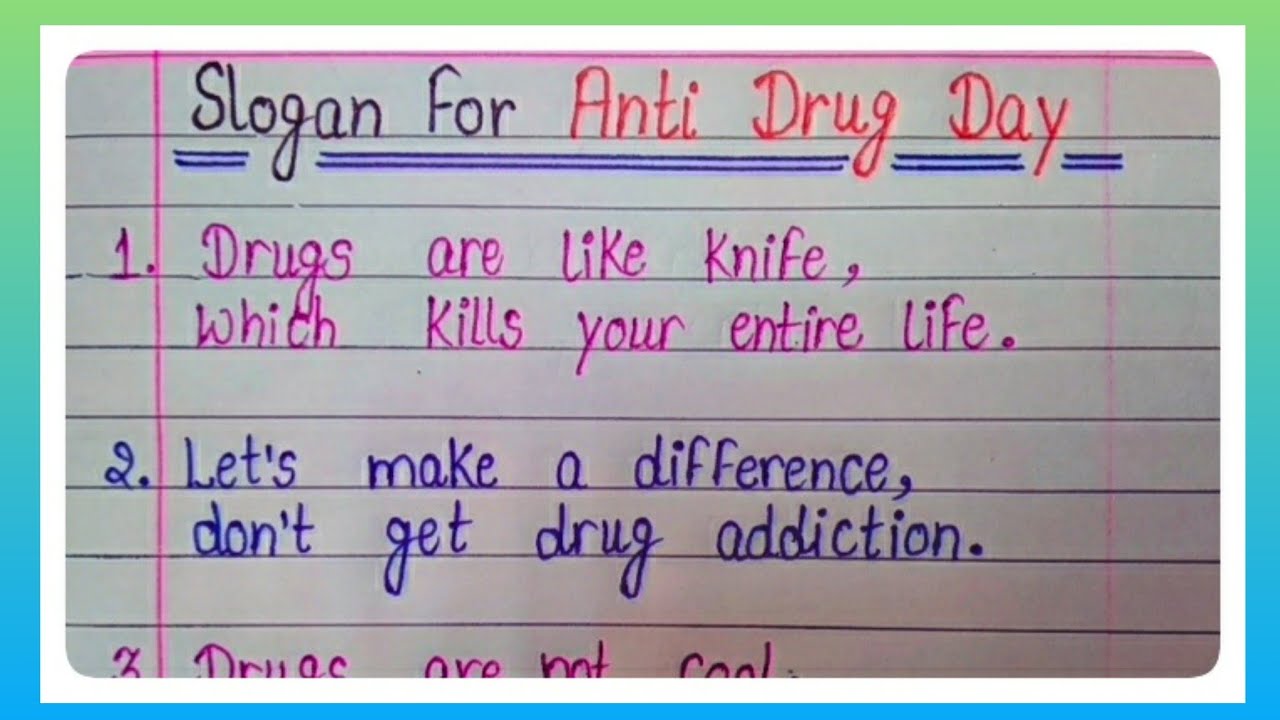 Slogan For Anti Drug Day
1. Drugs are like knife,
which kills your entire life.
2. Let's make a difference,
don't get drug addiction.
3 Drugs are not cool